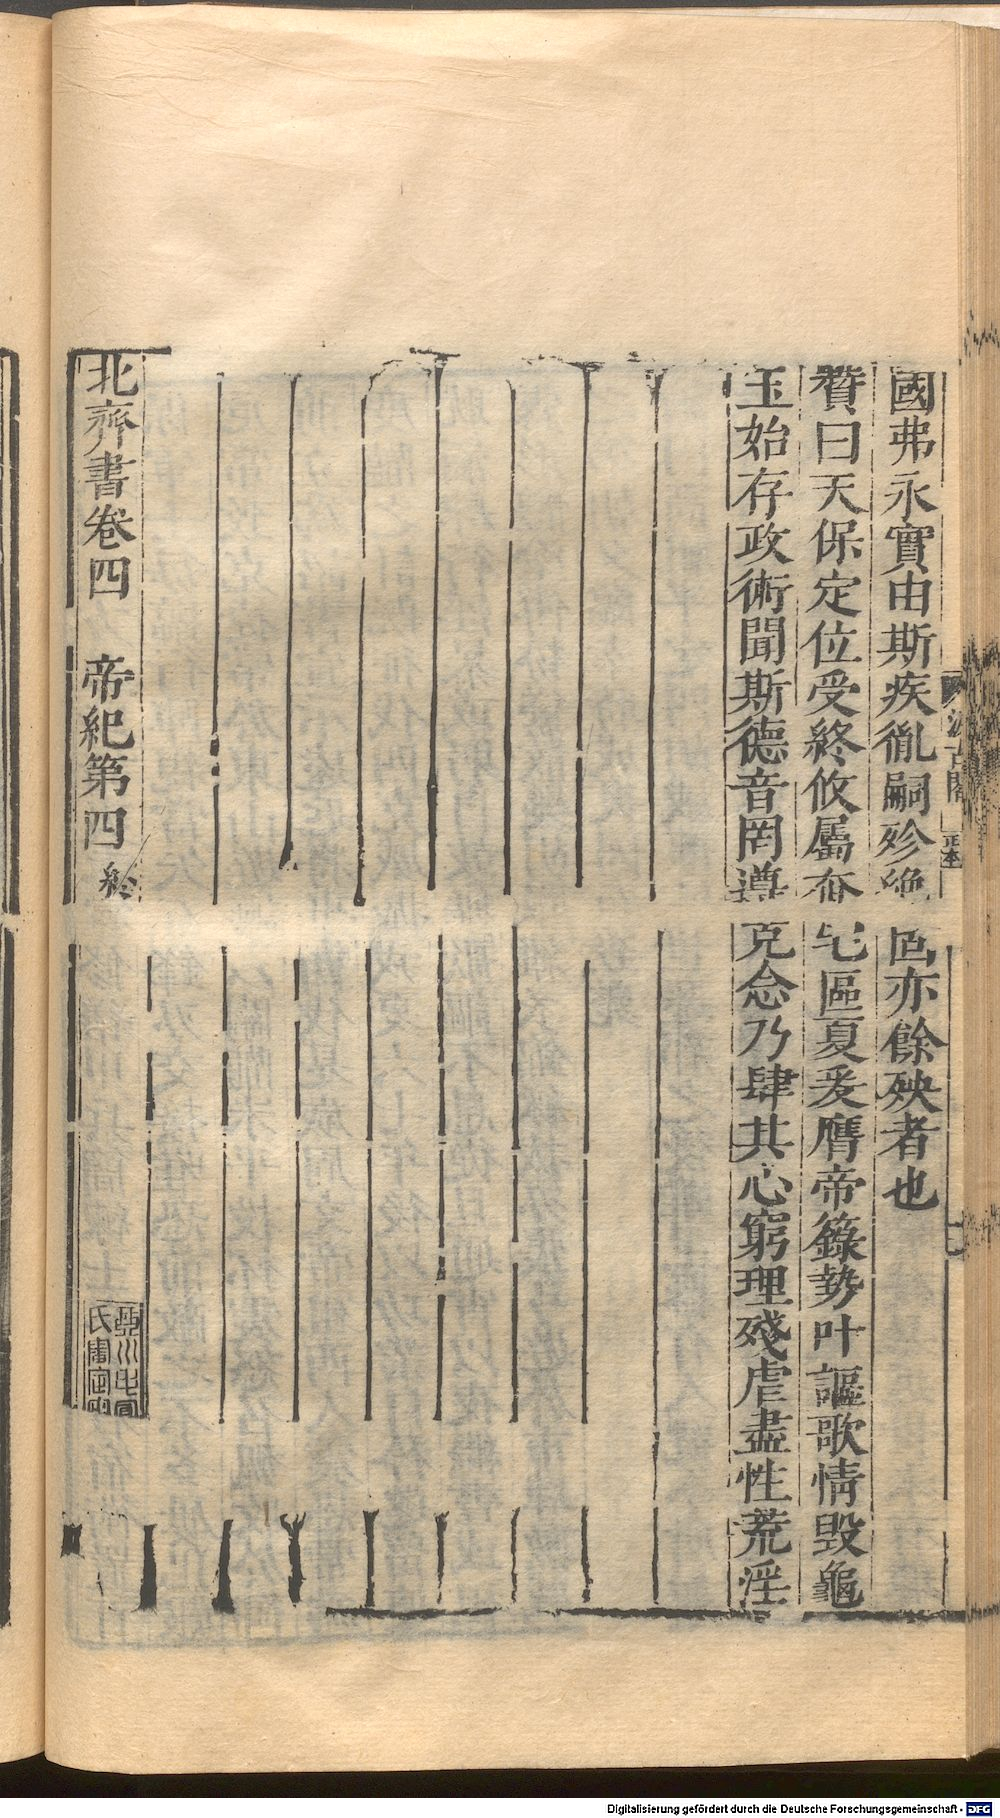 國弗永實由斯疾胤嗣殄絶固亦餘殃者也
贊曰天保定位受終攸屬奄宅區夏爰膺帝籙勢叶謳歌情毀龜
玉始存政術聞斯德音罔遵克念乃肆其心窮理殘虐盡性荒淫
北齊書卷四 帝紀第四 終
汲古閣
正本
Digitalisierung gefördert durch die Deutsche Forschungsgemeinschaft - DFG